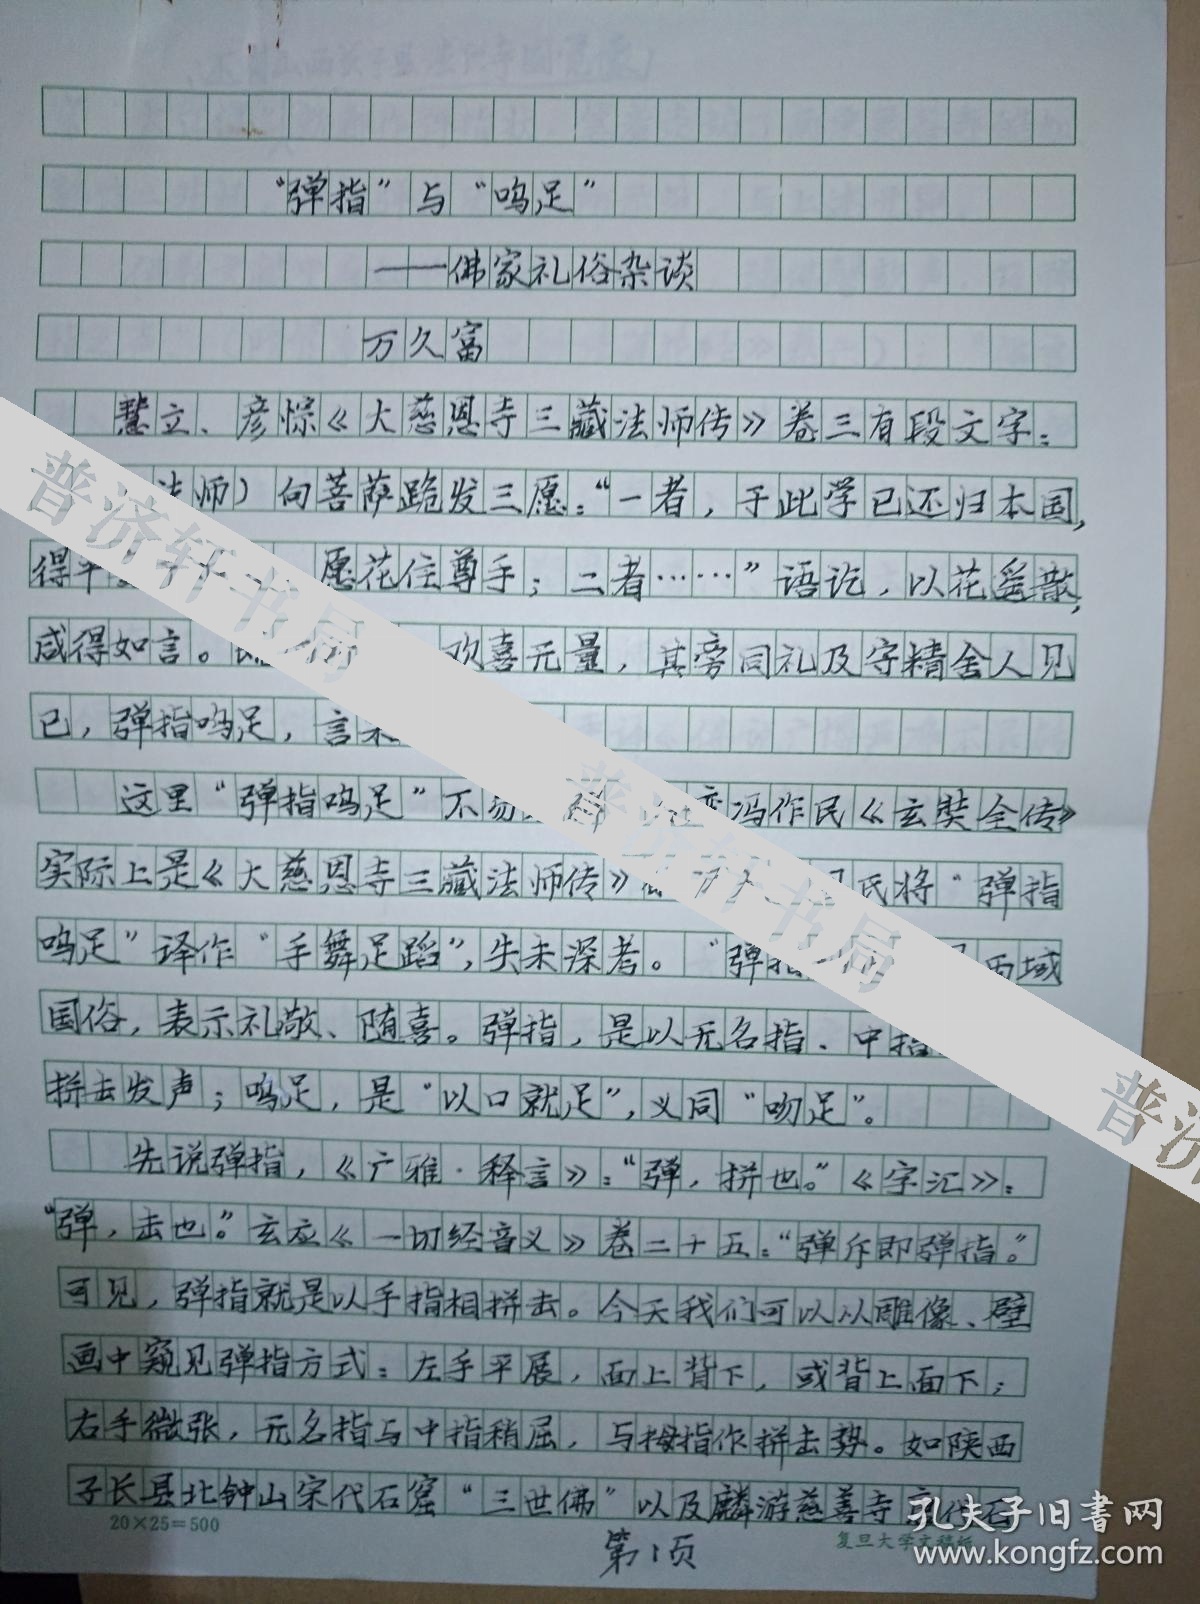 “弹指”与“鸣足”
——佛家礼俗杂谈
万久富
慧立、彦悰《大慈恩寺三藏法师传》卷三有段文字：
法师）向菩萨跪发三愿：“一者，于此学已还归本国，
得平 愿花住尊手；二者……”语讫，以花遥散，
咸得如言。 欢喜无量，其旁同礼及守精舍人见
已，弹指鸣足，言
这里“弹指鸣足”不易 冯作民《玄奘全传》
实际上是《大慈恩寺三藏法师传》 氏将“弹指
鸣足”译作“手舞足蹈”，失未深考。“弹指 西域
国俗，表示礼敬、随喜。弹指，是以无名指、中指
拼击发声；鸣足，是“以口就足”，义同“吻足”。
先说弹指，《广雅·释言》：“弹，拼也。”《字汇》：
“弹，击也。”玄应《一切经音义》卷二十五：“弹斥即弹指。”
可见，弹指就是以手指相拼击。今天我们可以从雕像、壁
画中窥见弹指方式：左手平展，面上背下，或背上面下；
右手微张，无名指与中指稍屈，与拇指作拼击势。如陕西
子长县北钟山宋代石窟“三世佛”以及麟游慈善寺 代石
20×25=500
第1页
复旦大学文稿纸
普济轩书局
普济轩书局
普济
孔夫子旧书网
www.kongfz.com